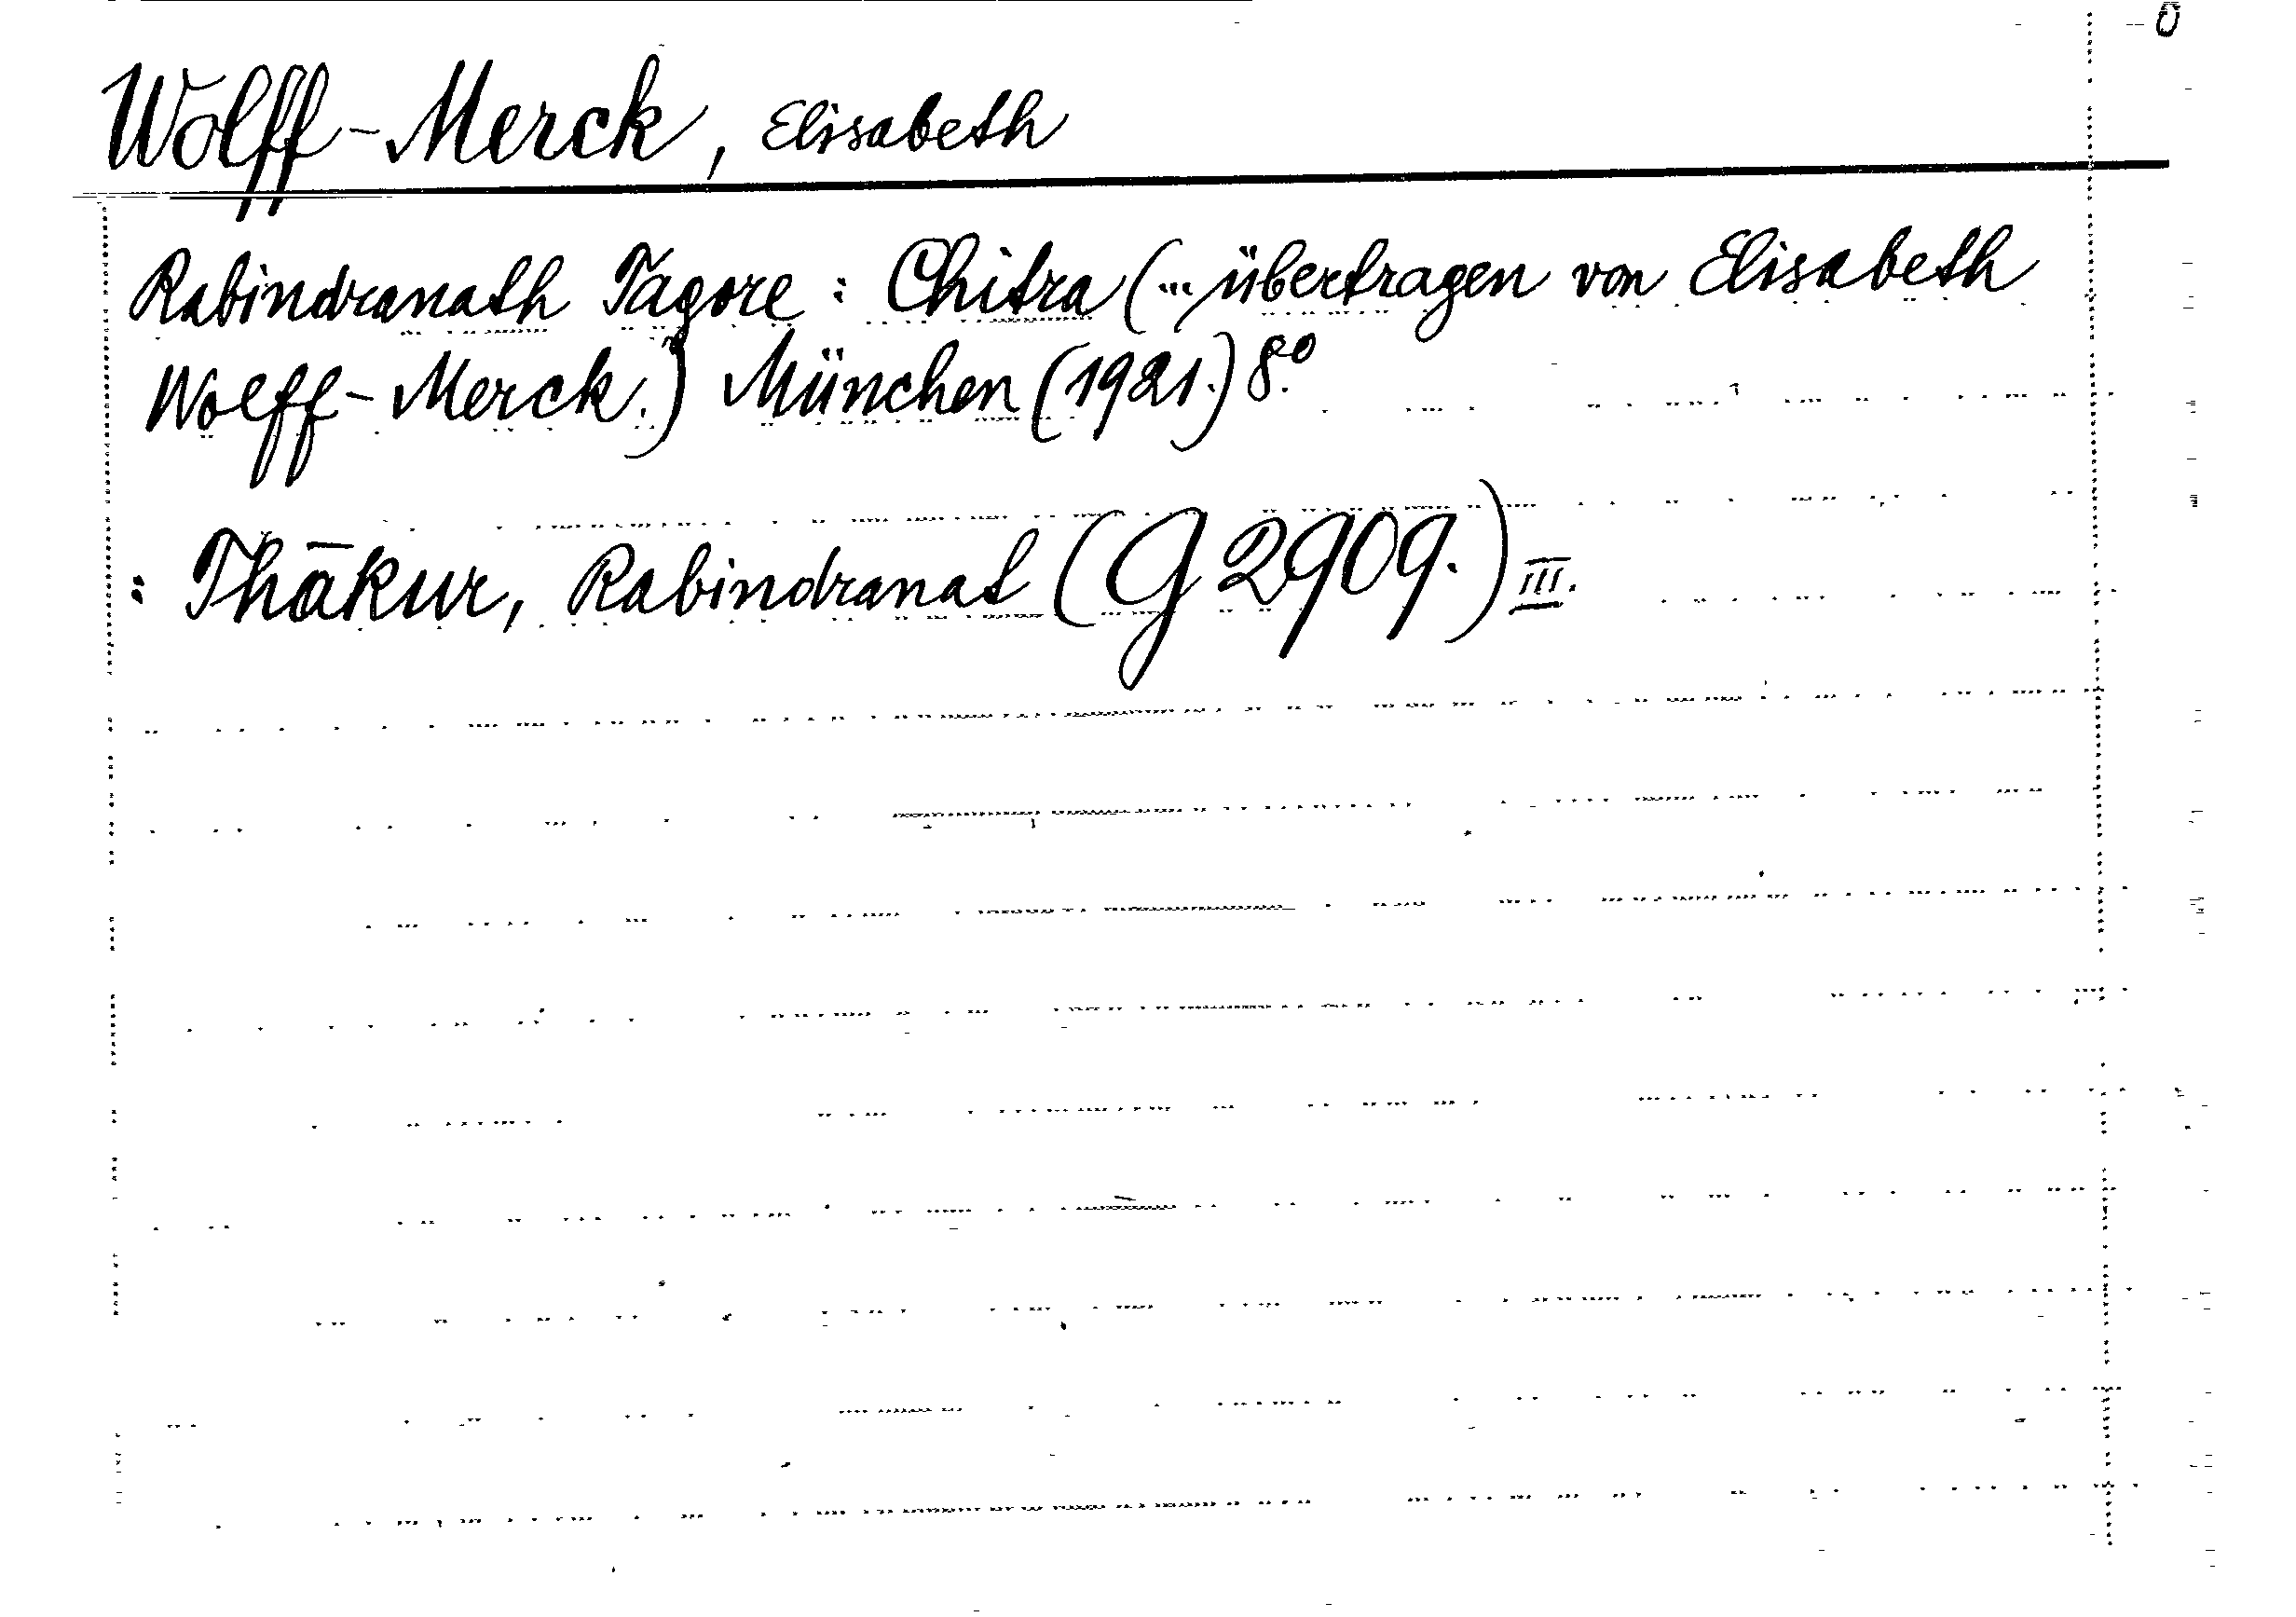 Wolff-Merck, Elisabeth
Rabindranath Tagore: Chitra (... übertragen von Elisabeth
Wolff-Merck.) München (1921.) 8.º
: Thākur, Rabindranat (G 2909.) III.